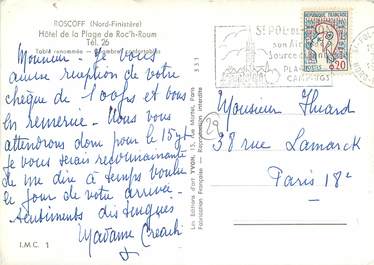 ROSCOFF (Nord-Finistère)
Hôtel de la Plage de Roc'h-Roum
Tél. 26
Table renommée - Chambres confortables
Monsieur - Je vous
accuse réception de votre
chèque de 100frs et vous
en remercie - Nous vous
attendrons donc pour le 15 Jt
Je vous serais reconnaissante
de me dire à temps voulu
le jour de votre arrivée.
Sentiments distingués
Madame Creach
I.M.C. 1
Les Editions d'art YVON, 15, Rue Martel, Paris
Fabrication Française - Reproduction interdite
St POL
son
Source
PLA
CAMPINGS
REPUBLIQUE FRANÇAISE
POSTES
0,20
29
Monsieur Huard
38 rue Lamarck
Paris 18e